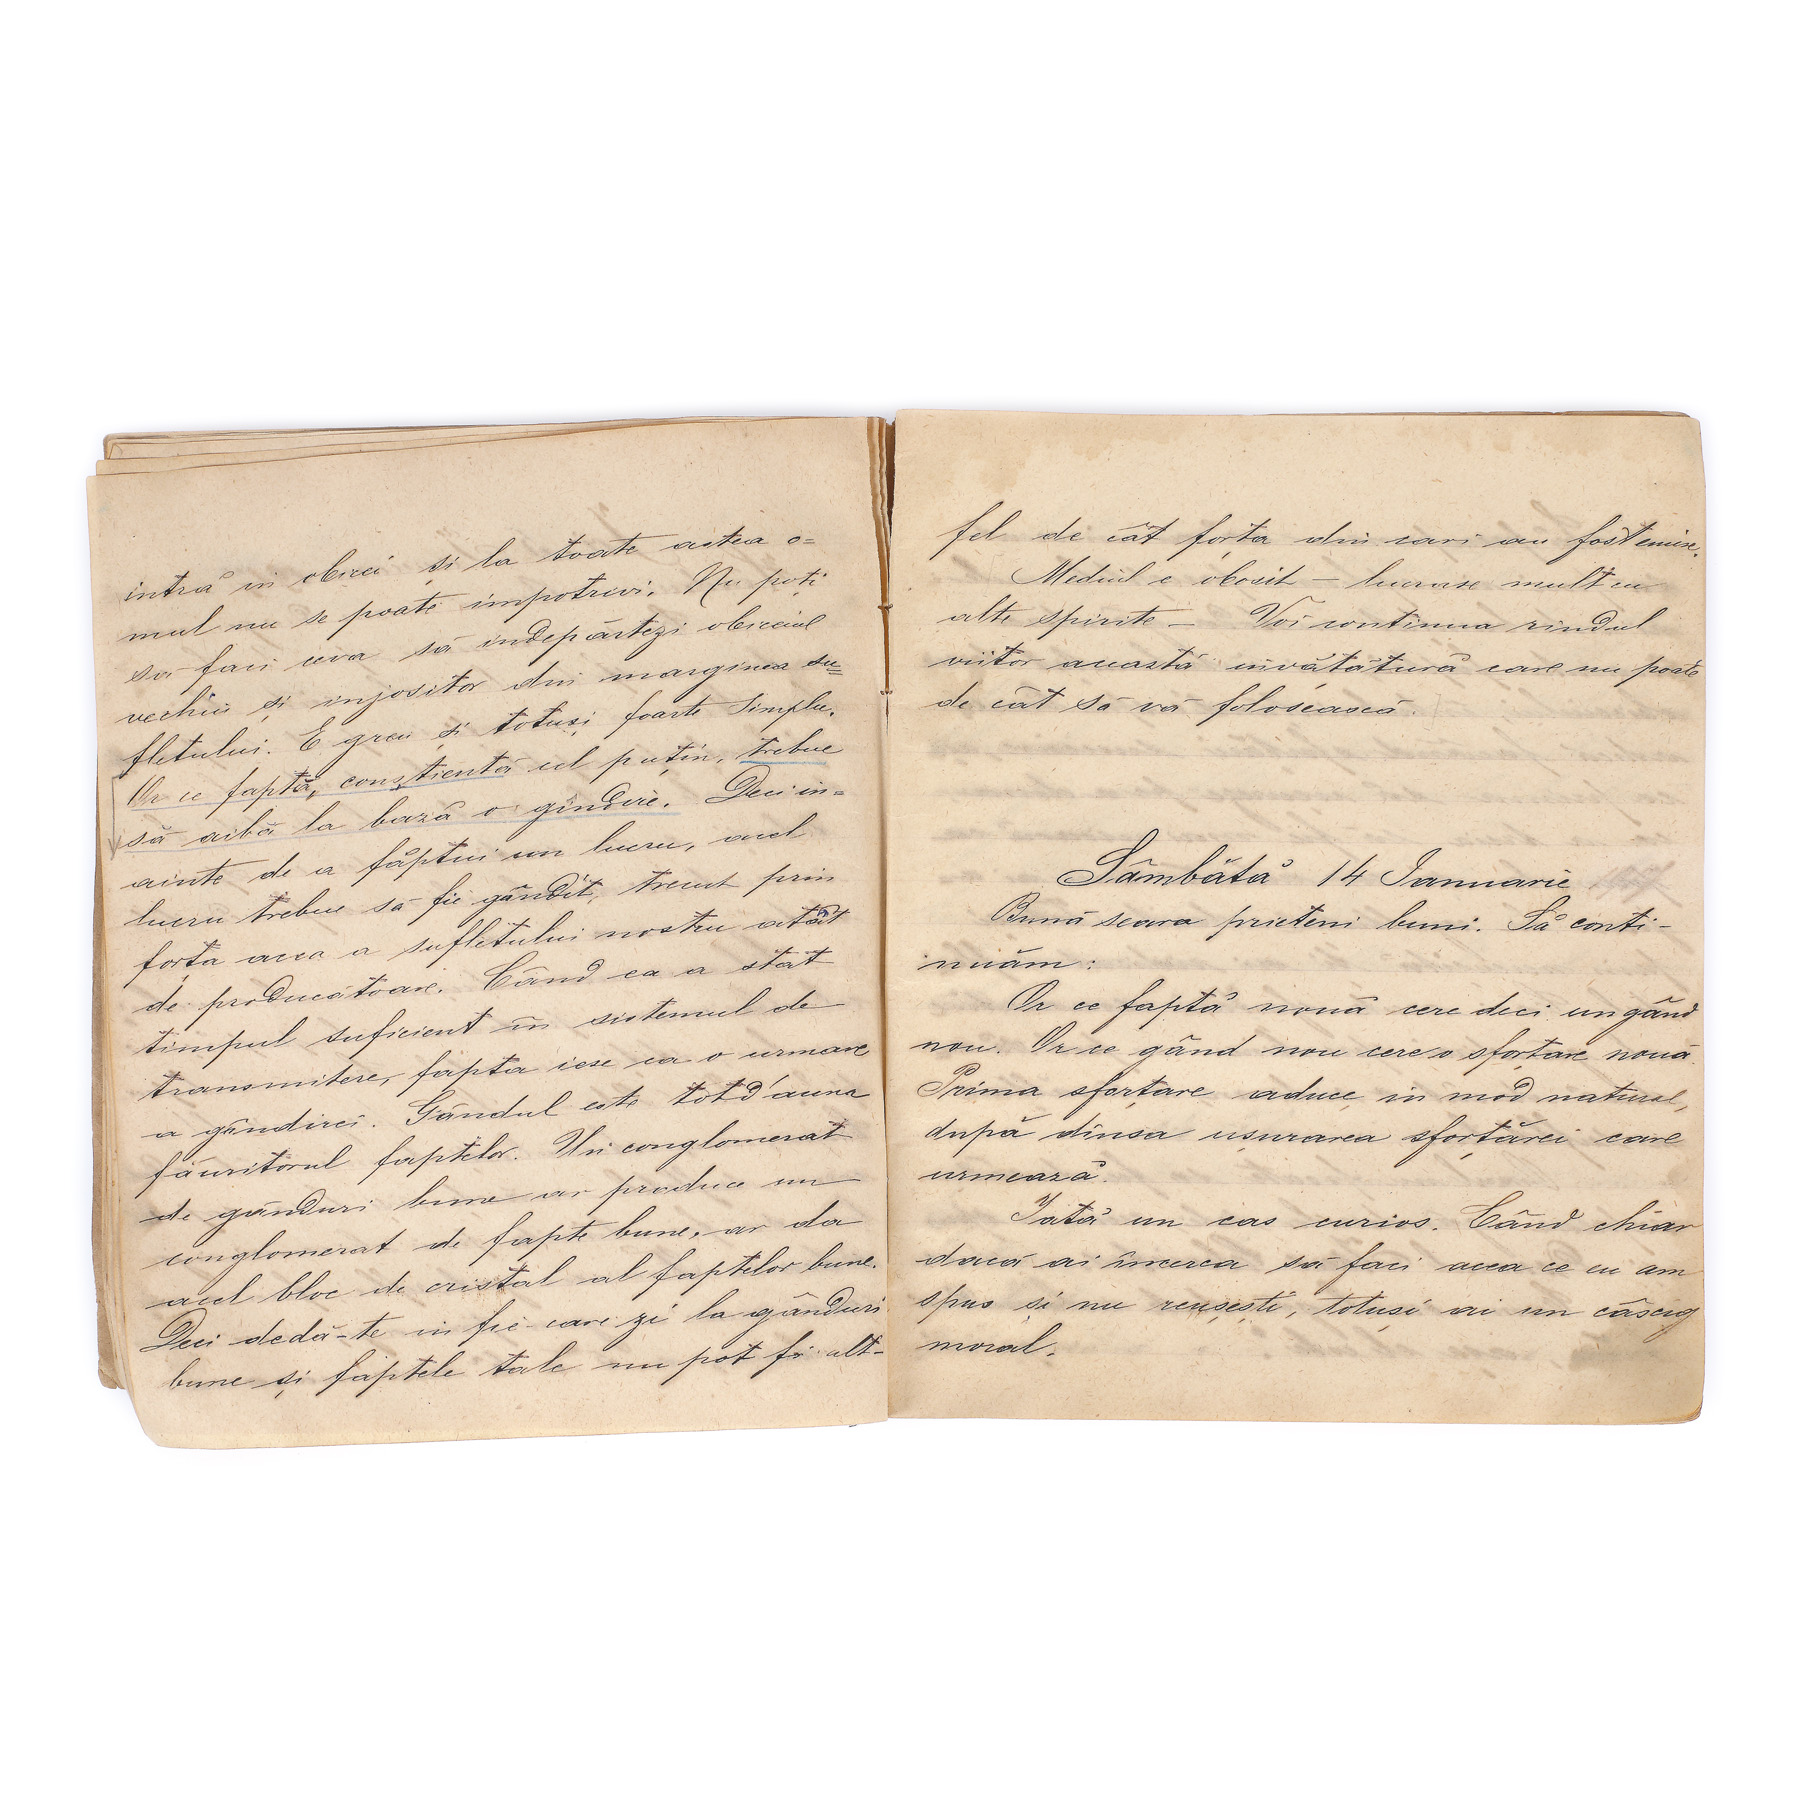 intră in obicei și la toate astea o=
mul nu se poate impotrivi. Nu poți
să faci ceva să indepărtezi obiceiul
vechiu și injositor din marginea su=
fletului. E greu și totuși foarte simplu.
Or ce faptă, conștientă cel puțin, trebue
să aibă la bază o gîndire. Deci in=
ainte de a făptui un lucru, acel
lucru trebue să fie gândit, trecut prin
forța aceea a sufletului nostru atât
de producătoare. Când ea a stat
timpul suficient în sistemul de
transmitere, fapta iese ca o urmare
a gândirei. Gândul este totd'auna
făuritorul faptelor. Un conglomerat
de gânduri bune ar produce un
conglomerat de fapte bune, ar da
acel bloc de cristal al faptelor bune.
Deci dedă-te in fie care zi la gânduri
bune și faptele tale nu pot fi alt-
fel de cât forța din cari au fost emise.
Mediul e obosit – lucrase mult cu
alte spirite – Voi continua rindul
viitor această învățătură care nu poate
de cât să vă folosească.
Sâmbătă 14 Ianuarie
Bună seara prieteni buni. Să conti-
nuăm:
Or ce faptă nouă cere deci un gând
nou. Or ce gând nou cere o sforțare nouă.
Prima sforțare aduce, in mod natural,
după dînsa ușurarea sforțărei care
urmează.
Iată un cas curios. Când chiar
dacă ai încerca să faci aceea ce eu am
spus și nu reușești, totuși ai un câscig
moral.